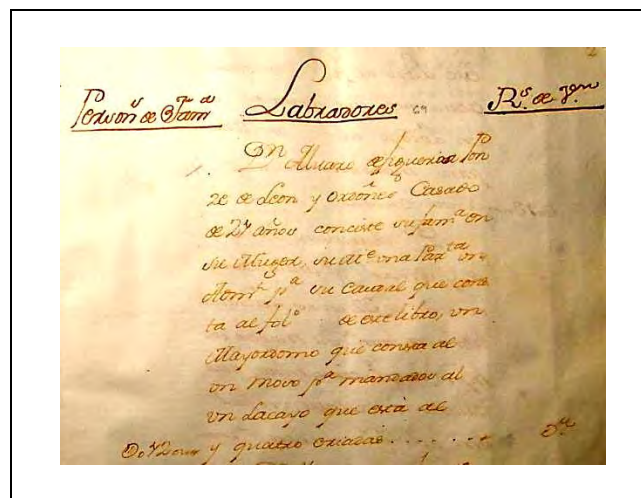 2
Person.s de Fam.a Labradores 69 R.s de V.on
D.n Alvaro de figueroa Pon
ze de Leon y Ordoñes Casado
de 27 años consiste su fam.a en
su Muger, su M.e una Par.ta un
Hom.e p.a su Caudal que cons
ta al fol.o de este libro, un
Mayordomo que consta al
un mozo p.a mandados al
un Lacayo que está al
y quatro criadas